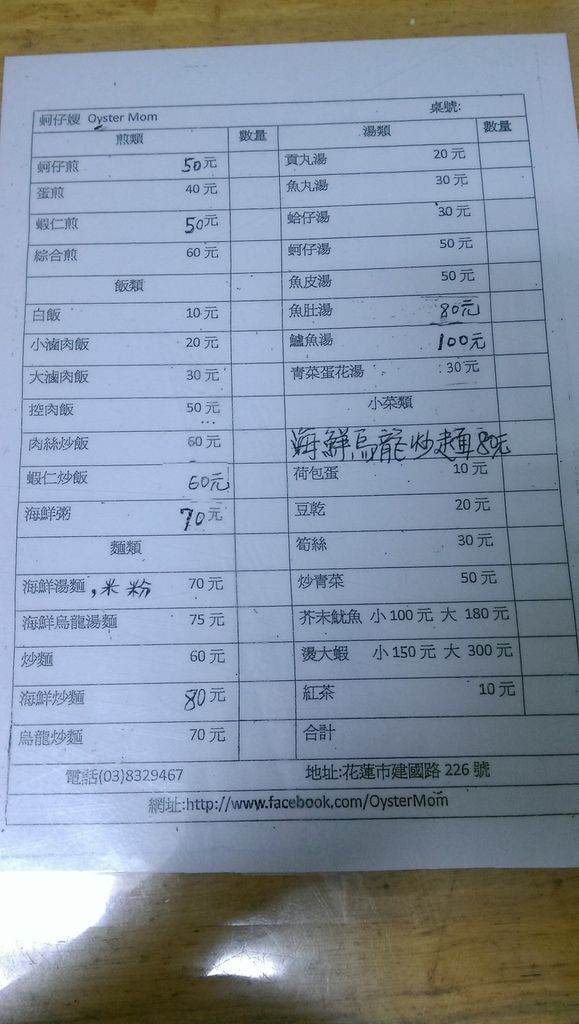 蚵仔嫂 Oyster Mom 桌號:
煎類 數量 湯類 數量
蚵仔煎 50元 貢丸湯 20元
蛋煎 40元 魚丸湯 30元
蝦仁煎 50元 蛤仔湯 30元
綜合煎 60元 蚵仔湯 50元
飯類 魚皮湯 50元
白飯 10元 魚肚湯 80元
小滷肉飯 20元 鱸魚湯 100元
大滷肉飯 30元 青菜蛋花湯 30元
控肉飯 50元 小菜類
肉絲炒飯 60元 海鮮烏龍炒麵80元
蝦仁炒飯 60元 荷包蛋 10元
海鮮粥 70元 豆乾 20元
麵類 筍絲 30元
海鮮湯麵,米粉 70元 炒青菜 50元
海鮮烏龍湯麵 75元 芥末魷魚 小100元 大 180元
炒麵 60元 燙大蝦 小150元 大 300元
海鮮炒麵 80元 紅茶 10元
烏龍炒麵 70元 合計
電話(03)8329467 地址:花蓮市建國路 226 號
網址:http://www.facebook.com/OysterMom